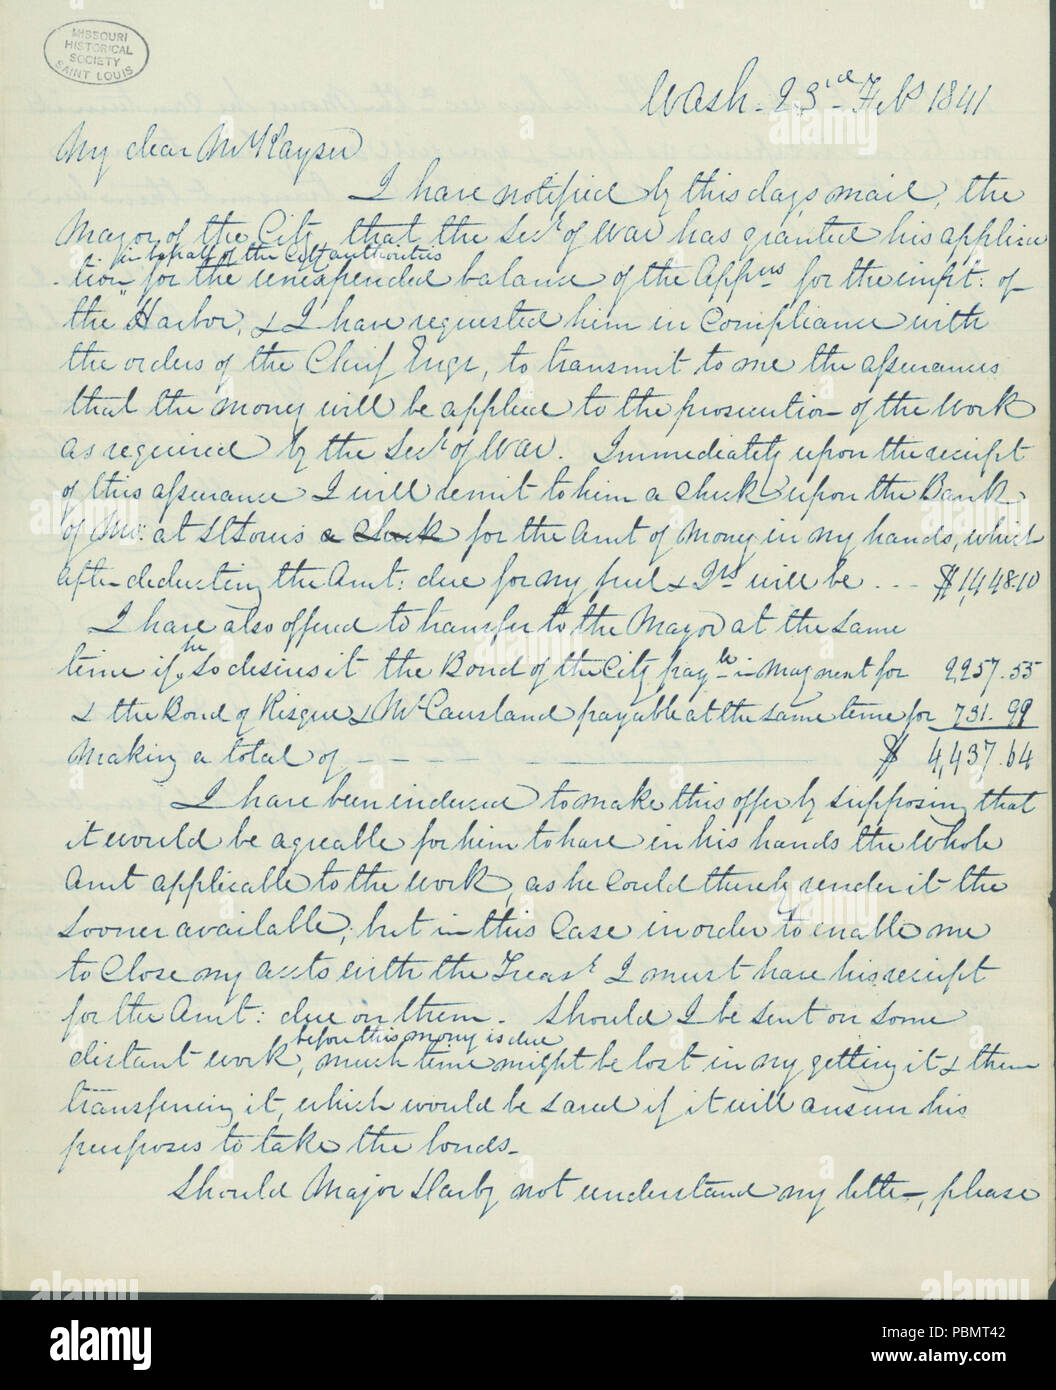 MISSOURI
HISTORICAL
SOCIETY
SAINT LOUIS
Wash. 23rd Feby 1841
My dear Mr Kayser
I have notified by this days mail, the
Mayor of the City that the Secy of War has granted his applica
in behalf of the City authorities
-tion for the unexpended balance of the Appns for the impt: of
the Harbor, & I have requested him in compliance with
the orders of the Chief Engr, to transmit to me the assurances
that the money will be applied to the prosecution of the work
as required by the Secy of War. Immediately upon the receipt
of this assurance I will remit to him a check upon the Bank
of Mo: at St Louis a check for the Amt of Money in my hands, which
after deducting the Amt: due for my fuel & Qrs will be . . - $1,448.10
I have also offered to transfer to the Mayor at the same
time if he so desires it the Bond of the City payle in May next for 2257.55
& the Bond of Risque & McCausland payable at the same time for 731.99
Making a total of - - - - $ 4,437.64
I have been induced to make this offer by supposing that
it would be agreable for him to have in his hands the whole
Amt applicable to the work, as he could thereby render it the
sooner available; but in this case in order to enable me
to close my accts with the Treasy I must have his receipt
for the Amt: due on them. Should I be sent on some
before this money is due
distant work, much time might be lost in my getting it & then
transferring it, which would be saved if it will answer his
purposes to take the bonds.
Should Major Darby not understand my letter, please
alamy
Image ID: PBMT42
www.alamy.com